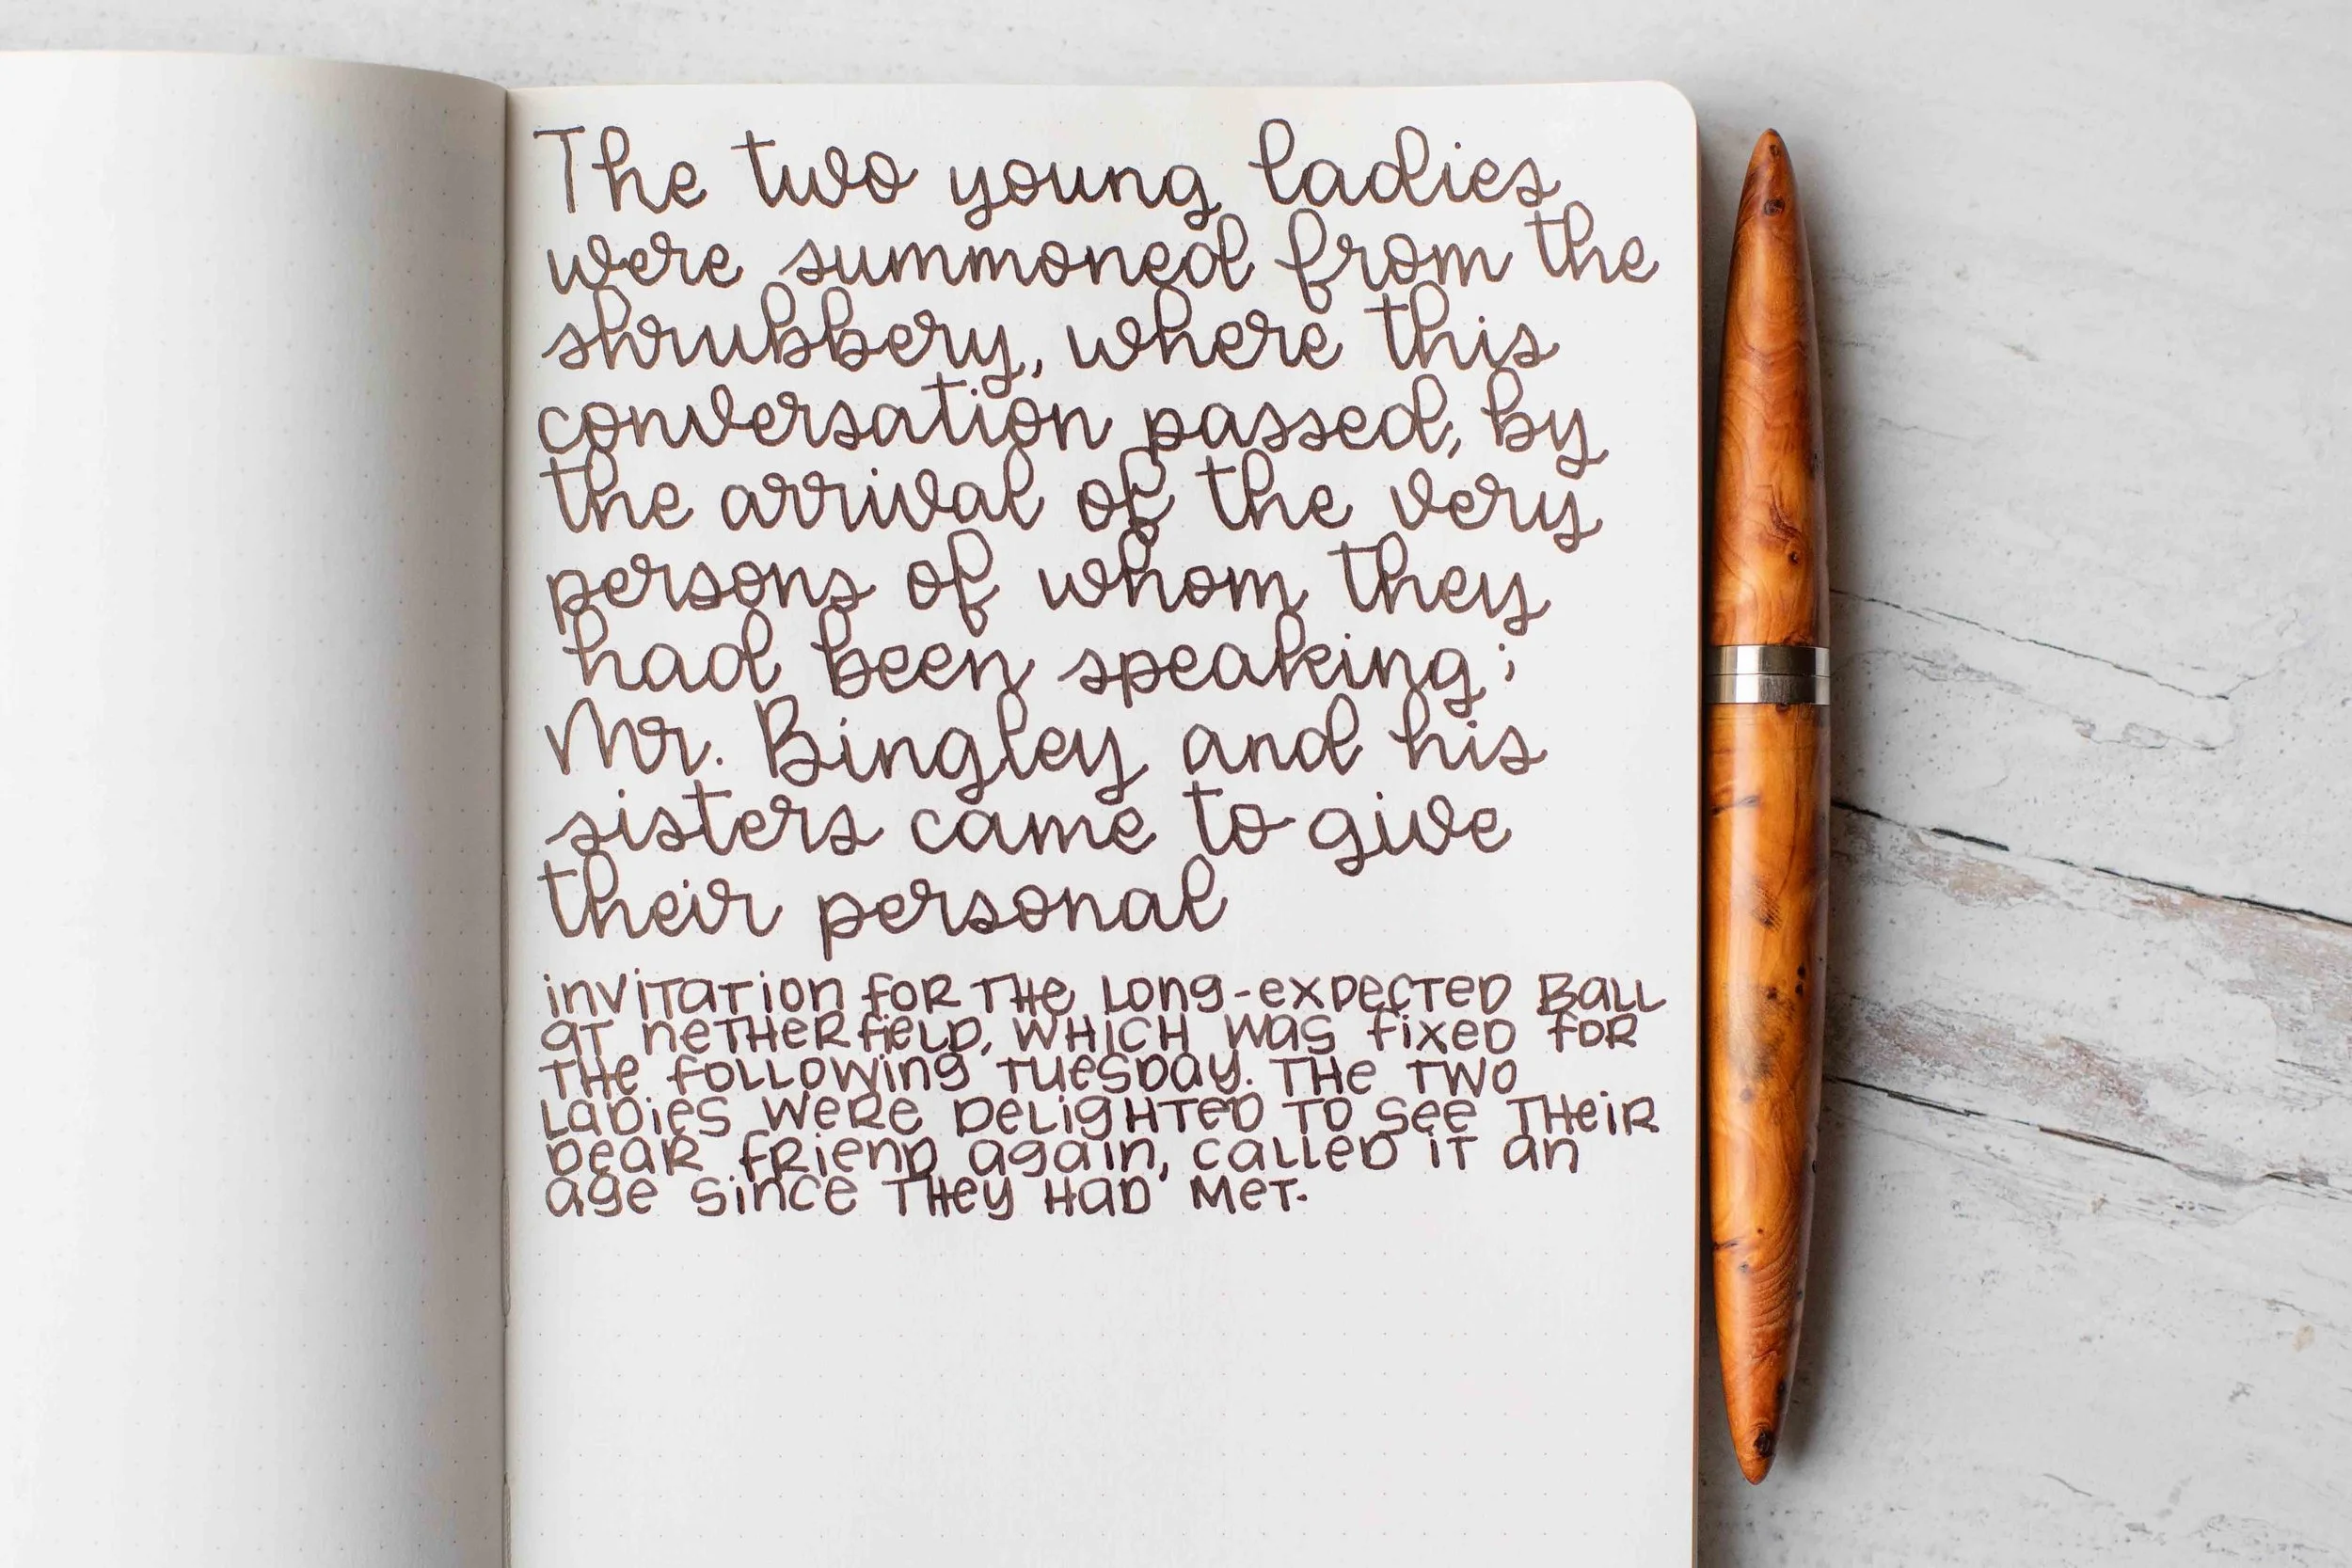 The two young ladies
were summoned from the
shrubbery, where this
conversation passed, by
the arrival of the very
persons of whom they
had been speaking;
Mr. Bingley and his
sisters came to give
their personal
invitation for the long-expected Ball
at netherfield, which was fixed for
the following Tuesday. The two
Ladies were delighted to see their
dear friend again, called it an
age since they had met.